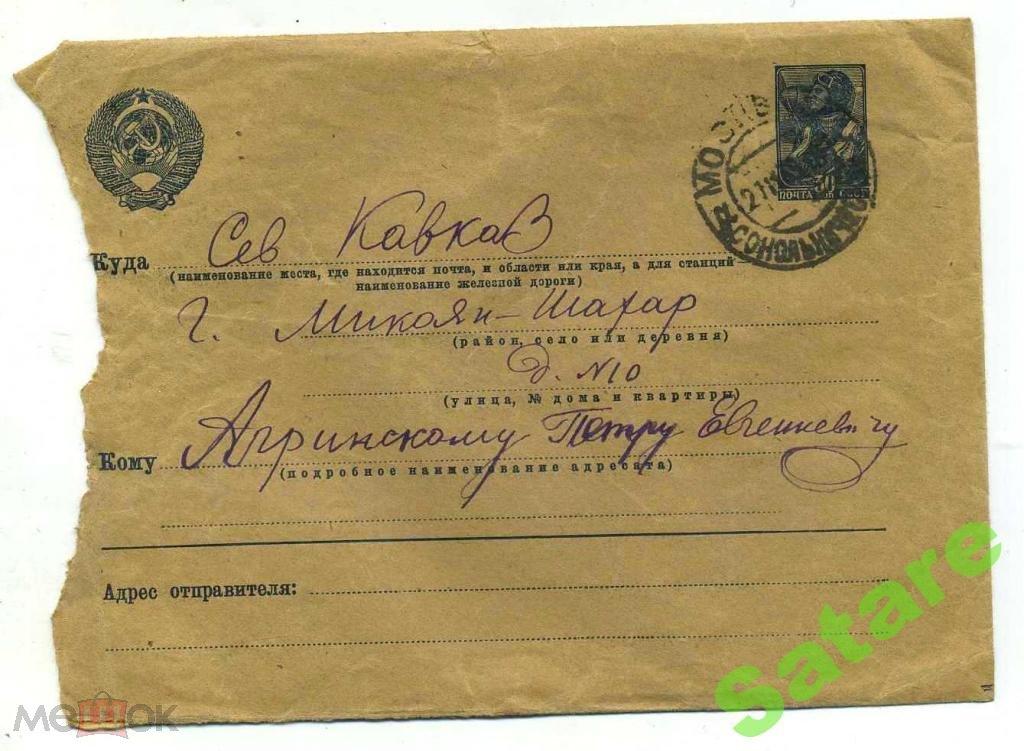 Сев Кавказ
Куда
(наименование места, где находится почта, и области или края, а для станций—
наименование железной дороги)
г. Микоян-Шахар
(район, село или деревня)
д. N10
(улица, № дома и квартиры)
Кому Агринскому Петру Евгениевичу
(подробное наименование адресата)
Адрес отправителя:
30
ПОЧТА СССР
МОСКВА
Satare
мешок